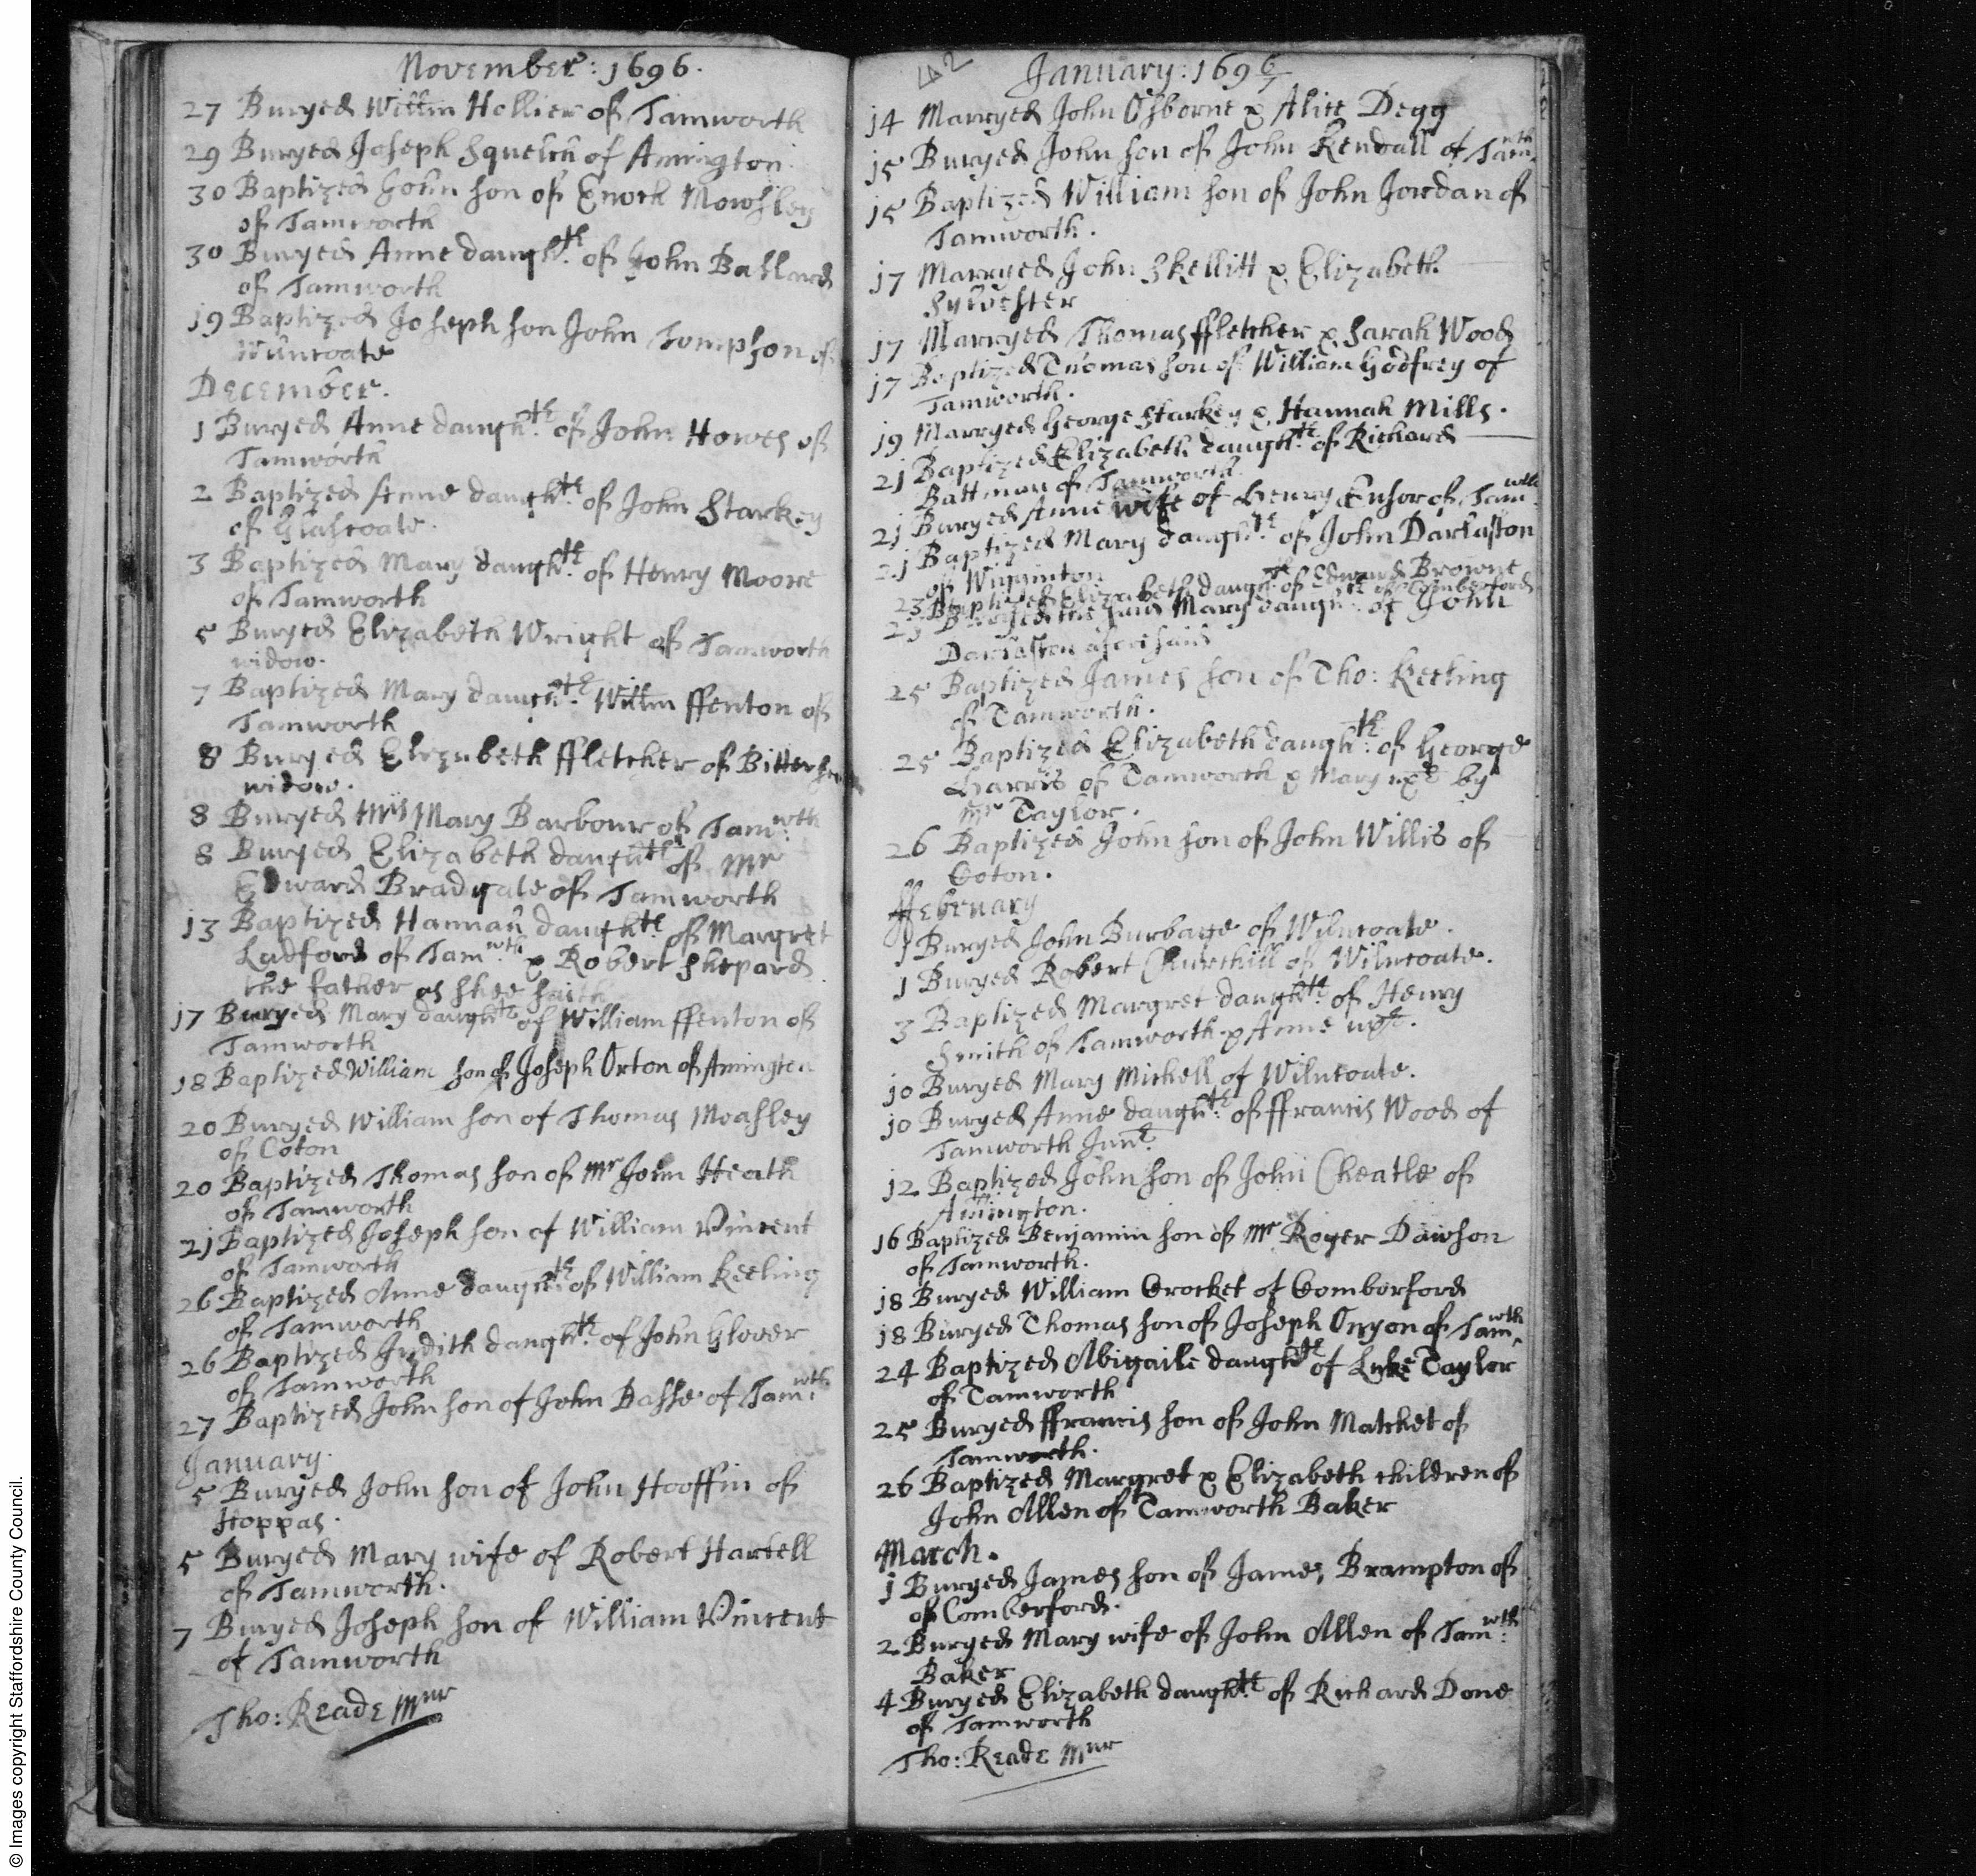 November: 1696.
27 Buryed Willm Hollier of Tamworth
29 Buryed Joseph Squelch of Amington.
30 Baptized John son of Enock Mowsley
of Tamworth
30 Buryed Anne daught.te of John Ballard
of Tamworth
19 Baptized Joseph son John Tompson of
Wilncoate
December.
1 Buryed Anne daught.te of John Howes of
Tamworth
2 Baptized Anne daught.te of John Starkey
of Glascoate.
3 Baptized Mary daught.te of Henry Moore
of Tamworth
5 Buryed Elizabeth Wright of Tamworth
widow.
7 Baptized Mary daught.te Willm ffenton of
Tamworth
8 Buryed Elizabeth ffletcher of
widow.
8 Buryed Mris Mary Barbour of Tam:wth
8 Buryed Elizabeth daught.te of Mr
Edward Bradgate of Tamworth
13 Baptized Hannah daught.te of Margret
Ludford of Tam:wth & Robert Shepard
the father as shee saith
17 Buryed Mary daught.te of William ffenton of
Tamworth
18 Baptized William son of Joseph Orton of Amington
20 Buryed William son of Thomas Moasley
of Coton
20 Baptized Thomas son of Mr John Heath
of Tamworth
21 Baptized Joseph son of William Vincent
of Tamworth
26 Baptized Anne daught.te of William Keeling
of Tamworth
26 Baptized Judith daught.te of John Glover
of Tamworth
27 Baptized John son of John Basse of Tam:wth
January.
5 Buryed John son of John Hooffin of
Hoppas.
5 Buryed Mary wife of Robert Hartell
of Tamworth.
7 Buryed Joseph son of William Vincent
of Tamworth
Tho: Reade Mnr
42
January: 169 6/7
14 Marryed John Osborne & Alice Degg
15 Buryed John son of John Kendall of Tam:wth
15 Baptized William son of John Jordan of
Tamworth.
17 Marryed John Skellitt & Elizabeth
Sylvester
17 Marryed Thomas ffletcher & Sarah Wood
17 Baptized Thomas son of William Godfrey of
Tamworth.
19 Marryed George Starkey & Hannah Mills.
21 Baptized Elizabeth daught.te of Richard
Battman of Tamworth.
21 Buryed Anne wife of Henry Ensor of Tam:wth
21 Baptized Mary daught.te of John Darlaston
of Wigginton
23 Baptized Elizabeth daught.te of Edward Browne of Comberford
23 Buryed the said Mary daught.te of John
Darlaston aforesaid
25 Baptized James son of Tho: Keeling
of Tamworth.
25 Baptized Elizabeth daught.te of George
Harris of Tamworth & Mary uxe by
Mr Taylor.
26 Baptized John son of John Willis of
Coton.
ffebruary
1 Buryed John Burbage of Wilncoate.
1 Buryed Robert Churchill of Wilncoate.
3 Baptized Margret daught.te of Henry
Smith of Tamworth & Anne uxe.
10 Buryed Mary Michell of Wilncoate.
10 Buryed Anne daught.te of ffrancis Wood of
Tamworth Junr.
12 Baptized John son of John Cheatle of
Amington.
16 Baptized Benjamin son of Mr Roger Dawson
of Tamworth.
18 Buryed William Crocket of Comberford
18 Buryed Thomas son of Joseph Onyon of Tam:wth
24 Baptized Abigaile daught.te of Luke Taylor
of Tamworth
25 Buryed ffrancis son of John Matchet of
Tamworth.
26 Baptized Margret & Elizabeth children of
John Allen of Tamworth Baker
March.
1 Buryed James son of James Brampton of
of Comberford.
2 Buryed Mary wife of John Allen of Tam:wth
Baker
4 Buryed Elizabeth daught.te of Richard Done
of Tamworth
Tho: Reade Mnr
© Images copyright Staffordshire County Council.